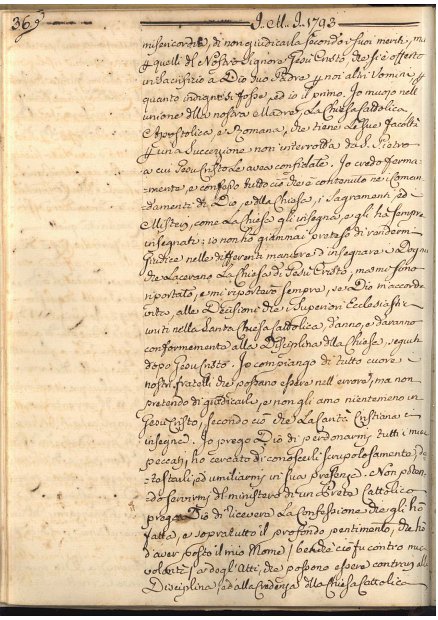 369 I. M. I. 1793
misericordie, di non giudicarla secondo i suoi meriti, ma
p quelli del Nostro Signore Gesù Cristo, che si è offerto
in Sacrificio a Dio suo Padre p noi altri Uomini, p
quanto indegni si fosse, ed io il primo. Io muojo nell'
unione della nostra Madre, La Chiesa Cattolica
Apostolica, e Romana, che tiene Le sue facoltà
p una successione non interrotta da S. Pietro
a cui Gesù Cristo Le avea confidate. Io credo ferma-
-mente, e confesso tutto ciò che è contenuto ne' Coman-
damenti di Dio, e della Chiesa, i Sagramenti, ed
Misterj, come La Chiesa gli insegna, e gli ha sempre
insegnati: io non ho giammai preteso di rendermi
giudice nelle differenti maniere d'insegnare i Dogmi
che Lacerano La Chiesa di Gesù Cristo, ma mi sono
riportato, e mi riporterò sempre, se Dio m'accorda
vita, alle Decisioni che i Superiori Ecclesiastici
uniti nella Santa Chiesa Cattolica, danno, e daranno
conformemente alla Disciplina della Chiesa, seguita
dopo Gesù Cristo. Io compiango di tutto cuore i
nostri fratelli che possano essere nell'errore, ma non
pretendo di giudicarli, e non gli amo nientemeno in
Gesù Cristo, secondo ciò che La Carità Cristiana c'
insegna. Io prego Dio di perdonarmi tutti i miei
peccati; ho cercato di conoscerli scrupolosamente, de-
-testarli, ed umiliarmi in sua presenza. Non poten-
do servirmi del ministero di un Prete Cattolico
prego Dio di ricevere La Confessione che gli ho
fatta, e sopratutto il profondo pentimento, che ho
d'aver posto il mio Nome (benchè ciò fu contro mia
volontà) ad degl'Atti, che possono essere contrarj alla
Disciplina, ed alla Credenza della Chiesa Cattolica